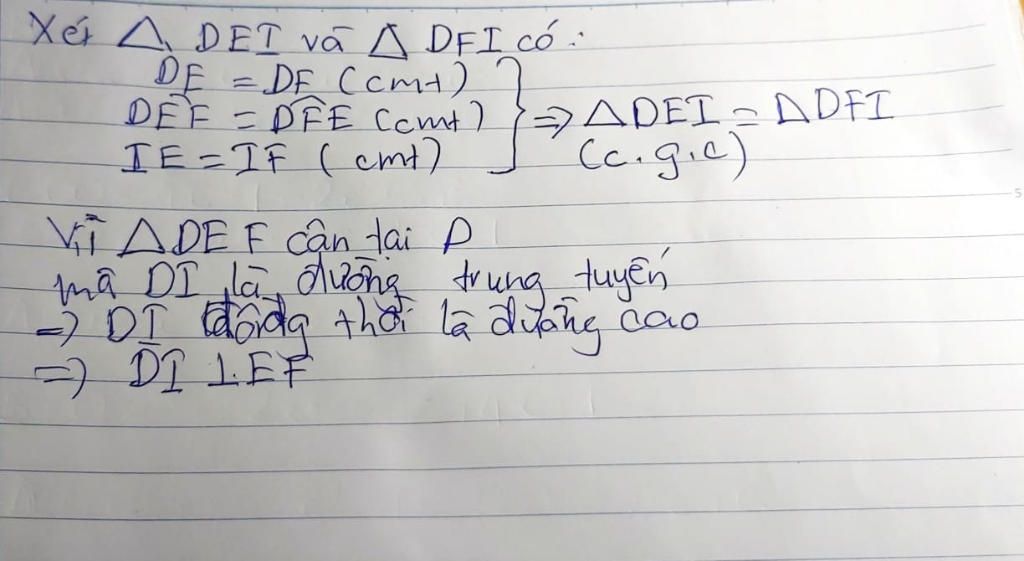 Xét △ DEI và △ DFI có:
DE = DF (cmt)
DÊF = DF̂E (cmt)
IE = IF (cmt)
⇒ △DEI = △DFI
(c.g.c)
Vì △DEF cân tại D
mà DI là đường trung tuyến
⇒ DI đồng thời là đường cao
⇒ DI ⊥ EF